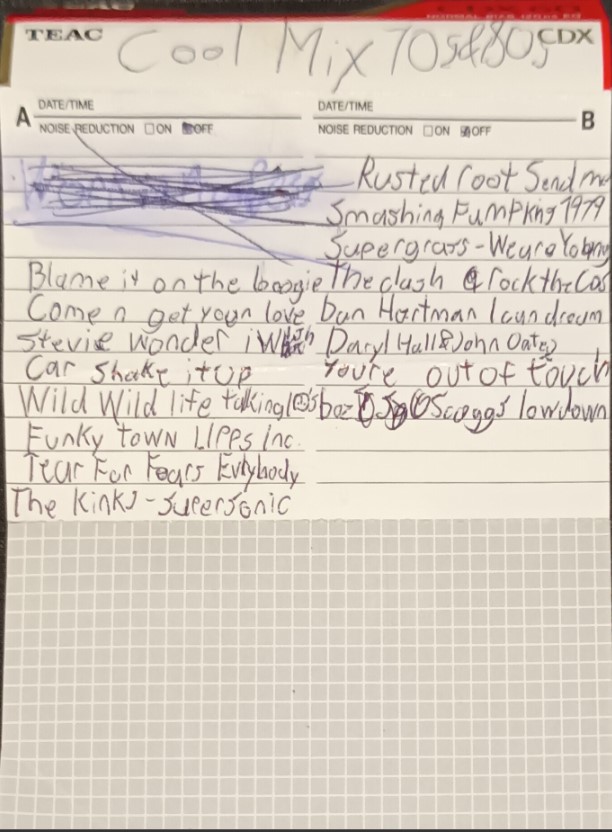 TEAC
CDX
Cool Mix 70s&80s
A
DATE/TIME
NOISE REDUCTION ON OFF
Blame it on the boogie
Come n get youn love
Stevie wonder i Wish
Car shake it up
Wild Wild life talking
Funky town LIPPS inc.
Tear For Fears Evrybody
The Kinks - Supersonic
B
DATE/TIME
NOISE REDUCTION ON OFF
Rusted root Send me
Smashing Pumpkins 1979
Supergrass - We are Young
The clash rock the Cas
Dan Hartman I can dream
Daryl Hall & John Oates
You're out of touch
boz Scaggs lowdown